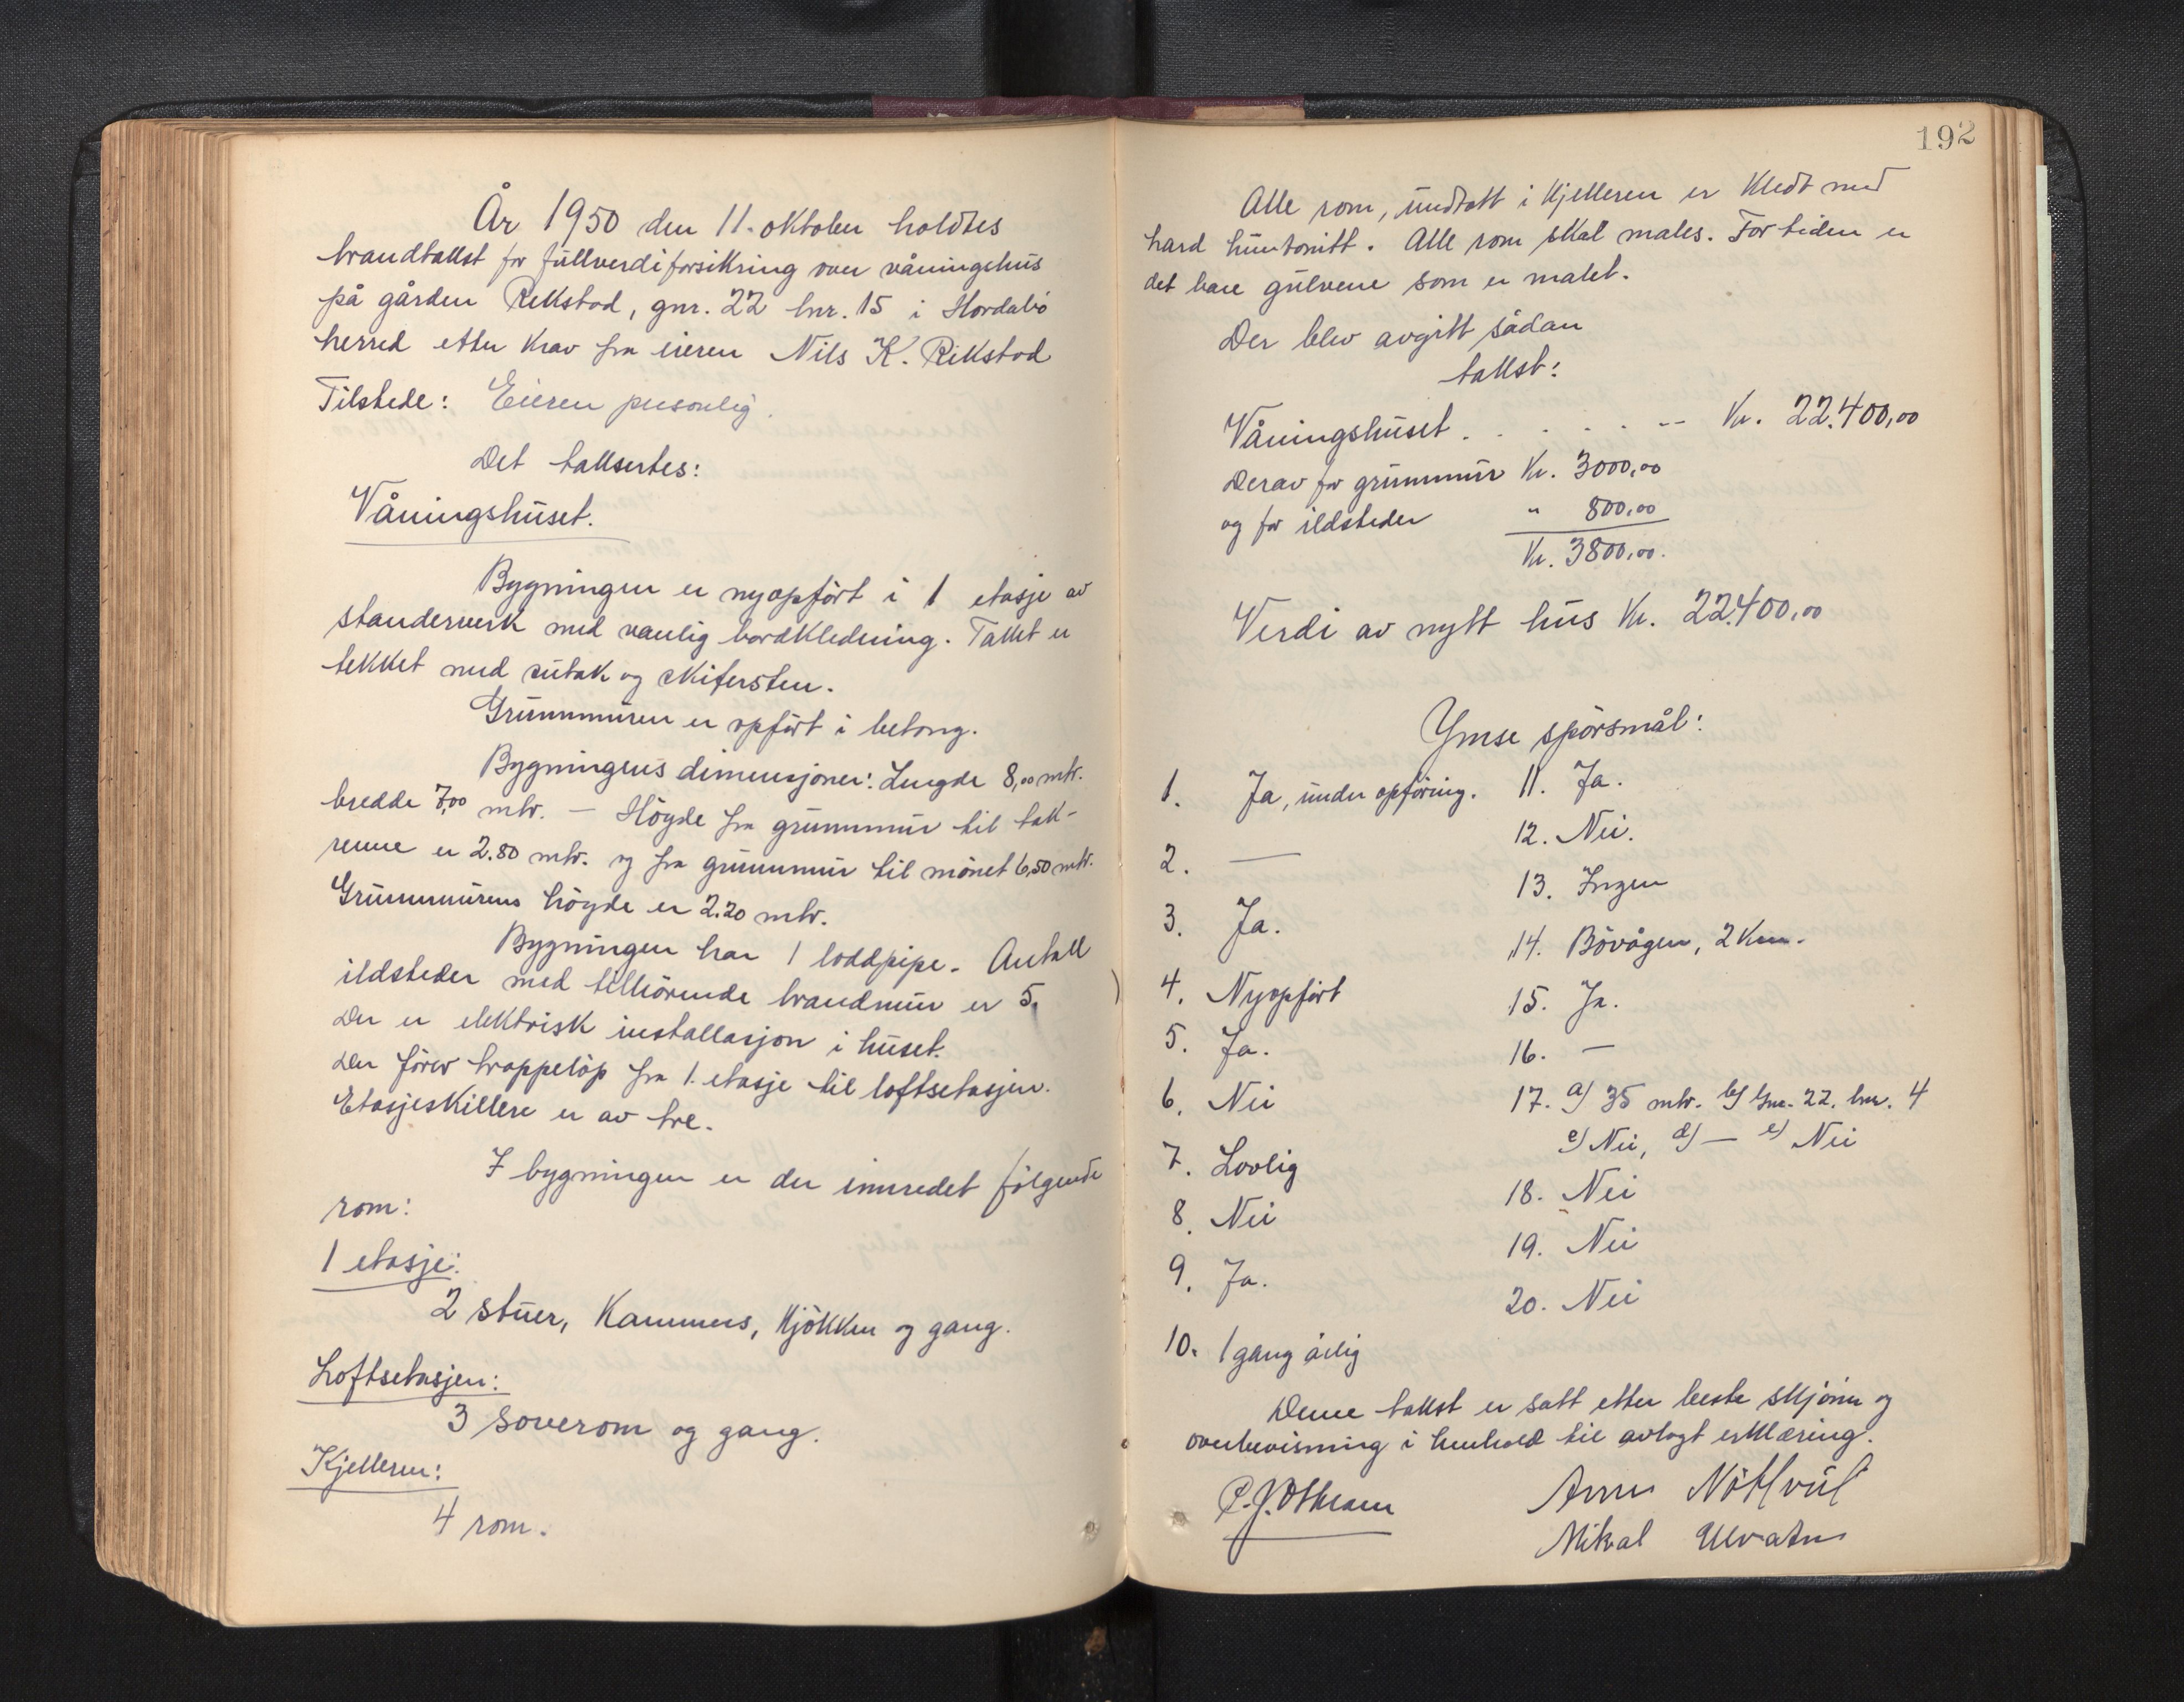 År 1950 den 11. oktober holdtes
brandtakst for fullverdiforsikring over våningshus
på gården Rikstad, gnr. 22 bnr. 15 i Hordabö
herred etter krav fra eieren Nils K. Rikstad
Tilstede: Eieren personlig.
Det taksertes:
Våningshuset.
Bygningen er nyopfört i 1 etasje av
standerverk med vanlig bordkledning. Taket er
tekket med sutak og skifersten.
Grunnmuren er opfört i betong.
Bygningens dimensjoner: Lengde 8,00 mtr.
bredde 7,00 mtr. — Högde fra grunnmur til tak-
renne er 2.80 mtr. og fra grunnmur til mönet 6,50 mtr.
Grunnmurens högde er 2.20 mtr.
Bygningen har 1 loddpipe. Antall
ildsteder med tilhörende brandmur er 5.
Der er elektrisk installasjon i huset.
Der förer trappelöp fra 1. etasje til loftsetasjen.
Etasjeskillere er av tre.
I bygningen er der innredet fölgende
rom:
1 etasje:
2 stuer, Kammers, Kjökken og gang.
Loftsetasjen:
3 soverom og gang.
Kjelleren:
4 rom.
192
Alle rom, undtatt i Kjelleren er kledt med
hard huntonitt. Alle rom skal males. For tiden er
det bare gulvene som er malet.
Der blev avgitt sådan
takst:
Våningshuset . . . . . -- Kr. 22.400,00
Derav for grunnmur Kr. 3000,00
og for ildsteder " 800,00
Kr. 3800,00.
Verdi av nytt hus Kr. 22.400,00
Ymse spörsmål:
1. Ja, under opföring.
2. —
3. Ja.
4. Nyopfört
5. Ja.
6. Nei
7. Lovlig
8. Nei
9. Ja.
10. 1 gang årlig
11. Ja.
12. Nei.
13. Ingen
14. Bövågen, 2 Km.
15. Ja.
16. —
17. a) 35 mtr. b) Gnr. 22. bnr. 4
c) Nei, d) — e) Nei
18. Nei
19. Nei
20. Nei
Denne takst er satt etter beste skjönn og
overbevisning i henhold til avlagt erklæring.
Nötlvül
Mikal